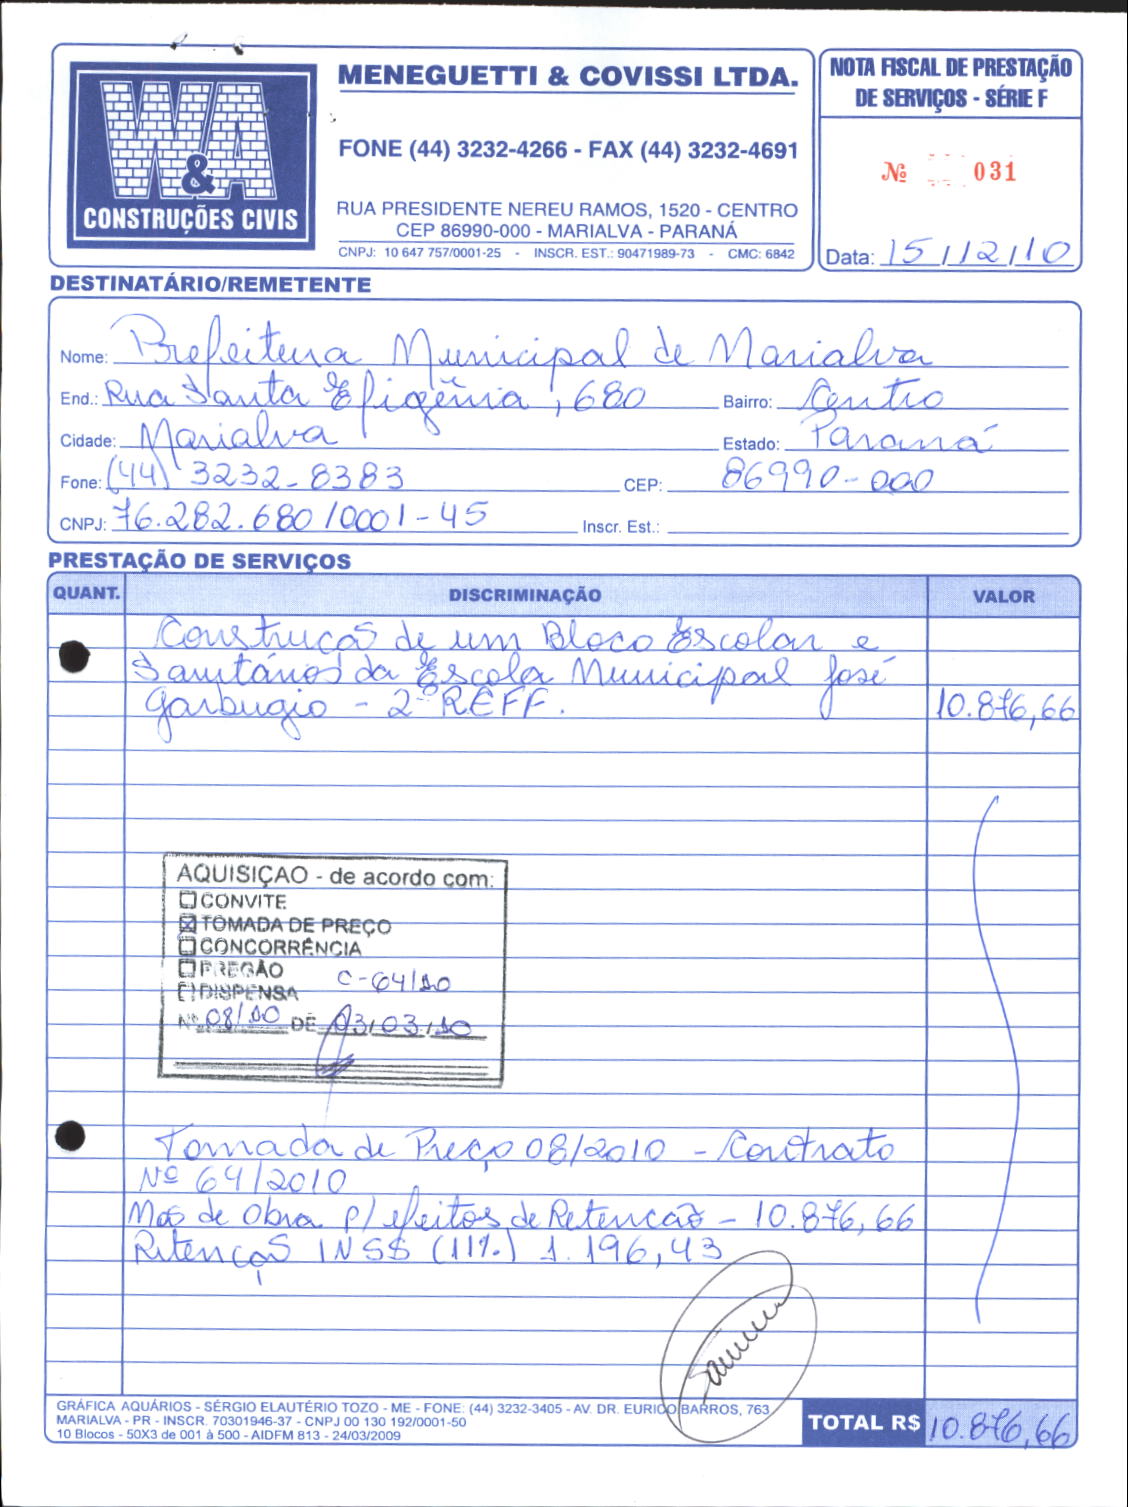 W&A
CONSTRUÇÕES CIVIS
MENEGUETTI & COVISSI LTDA.
FONE (44) 3232-4266 - FAX (44) 3232-4691
RUA PRESIDENTE NEREU RAMOS, 1520 - CENTRO
CEP 86990-000 - MARIALVA - PARANÁ
CNPJ: 10 647 757/0001-25 - INSCR. EST.: 90471989-73 - CMC: 6842
NOTA FISCAL DE PRESTAÇÃO
DE SERVIÇOS - SÉRIE F
Nº 031
Data: 15/12/10
DESTINATÁRIO/REMETENTE
Nome: Prefeitura Municipal de Marialva
End.: Rua Santa Efigênia, 680 Bairro: Centro
Cidade: Marialva Estado: Paraná
Fone: (44) 3232-8383 CEP: 86990-000
CNPJ: 76.282.680/0001-45 Inscr. Est.:
PRESTAÇÃO DE SERVIÇOS
QUANT. DISCRIMINAÇÃO VALOR
Construcão de um Bloco Escolar e
Sanitários da Escola Municipal José
Garbugio - 2º REFF. 10.876,66
AQUISIÇAO - de acordo com:
CONVITE
TOMADA DE PREÇO
CONCORRÊNCIA
PREGÃO C-64/10
DISPENSA
Nº 08/10 DE 03/03/10
Tomada de Preço 08/2010 - Contrato
Nº 64/2010
Mão de Obra p/ efeitos de Retencão - 10.876,66
Retenção INSS (11%) 1.196,43
GRÁFICA AQUÁRIOS - SÉRGIO ELAUTÉRIO TOZO - ME - FONE: (44) 3232-3405 - AV. DR. EURICO BARROS, 763
MARIALVA - PR - INSCR. 70301946-37 - CNPJ 00 130 192/0001-50
10 Blocos - 50X3 de 001 à 500 - AIDFM 813 - 24/03/2009
TOTAL R$ 10.876,66